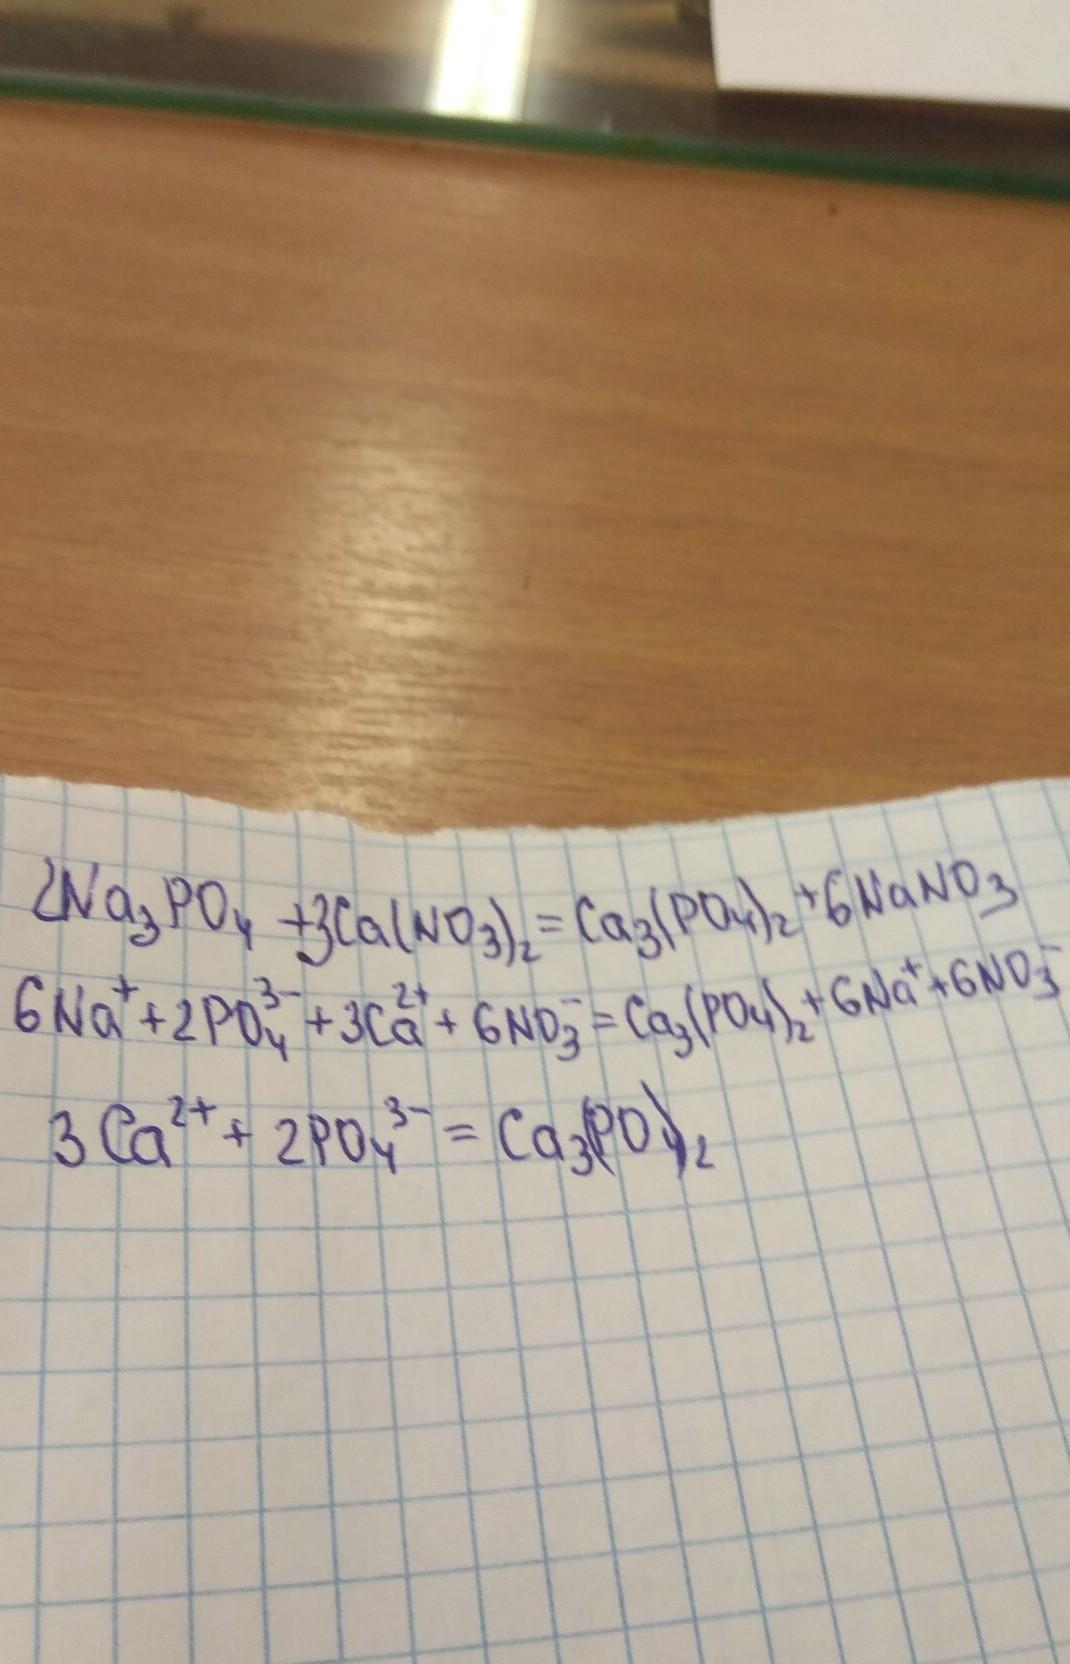 2Na₃PO₄ +3Ca(NO₃)₂ = Ca₃(PO₄)₂ +6NaNO₃
6Na⁺ + 2PO₄³⁻ + 3Ca²⁺ + 6NO₃⁻ = Ca₃(PO₄)₂ + 6Na⁺ + 6NO₃⁻
3Ca²⁺ + 2PO₄³⁻ = Ca₃(PO₄)₂